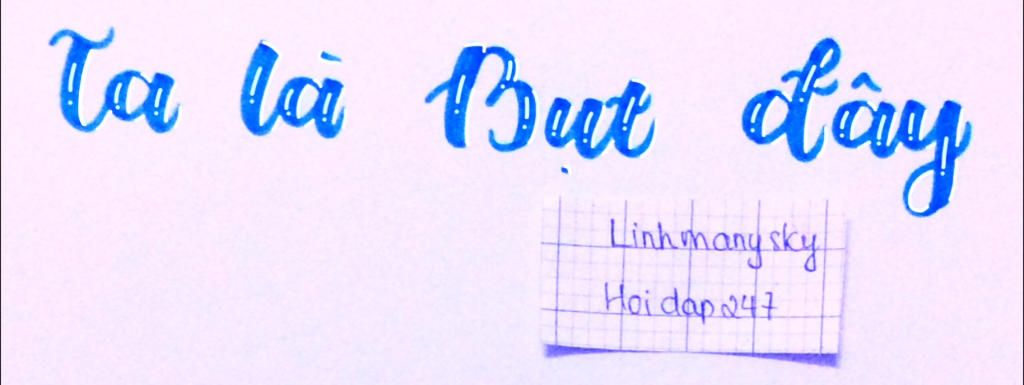 Ta là Bụt đây
Linhmangsky
Hoidap247